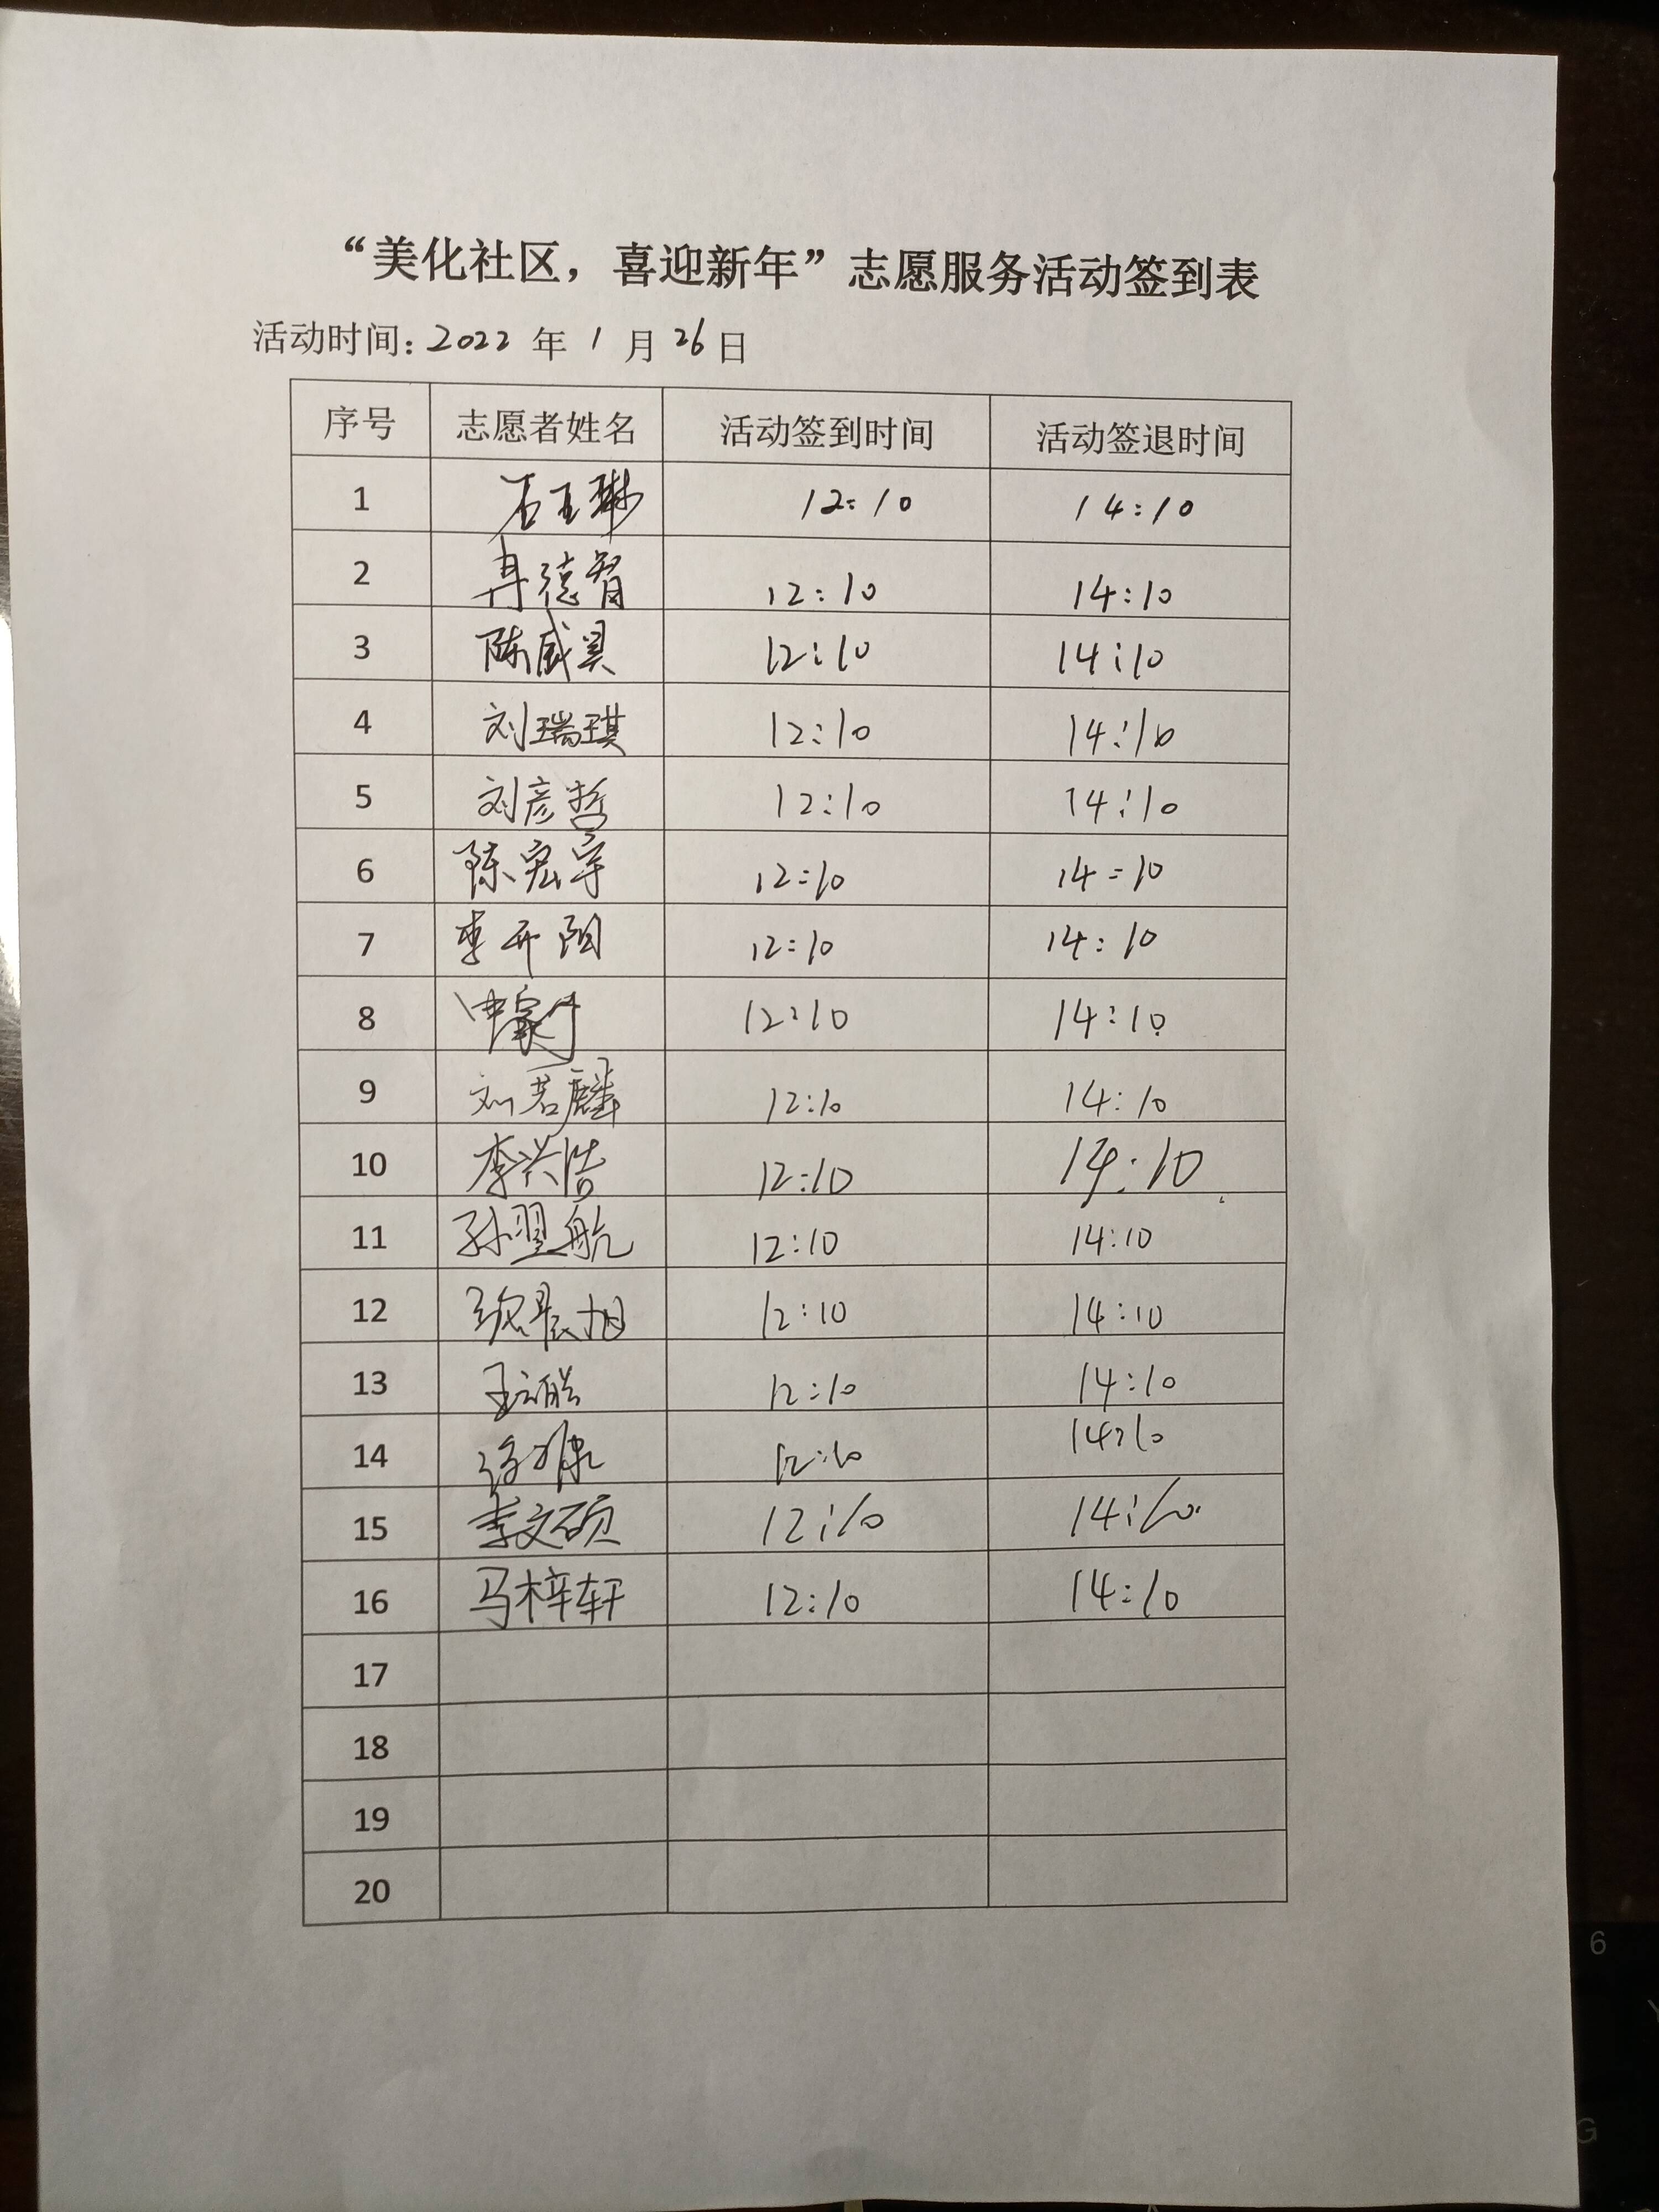 “美化社区，喜迎新年”志愿服务活动签到表
活动时间：2022 年 1 月 26 日
序号 志愿者姓名 活动签到时间 活动签退时间
1 石玉琳 12:10 14:10
2 冉德智 12:10 14:10
3 陈威昊 12:10 14:10
4 刘瑞琪 12:10 14:10
5 刘彦哲 12:10 14:10
6 陈宏宇 12:10 14:10
7 李开阳 12:10 14:10
8 12:10 14:10
9 刘若麟 12:10 14:10
10 李兴浩 12:10 14:10
11 孙翌航 12:10 14:10
12 晨旭 12:10 14:10
13 12:10 14:10
14 12:10 14:10
15 李文硕 12:10 14:10
16 马梓轩 12:10 14:10
17
18
19
20
6
G